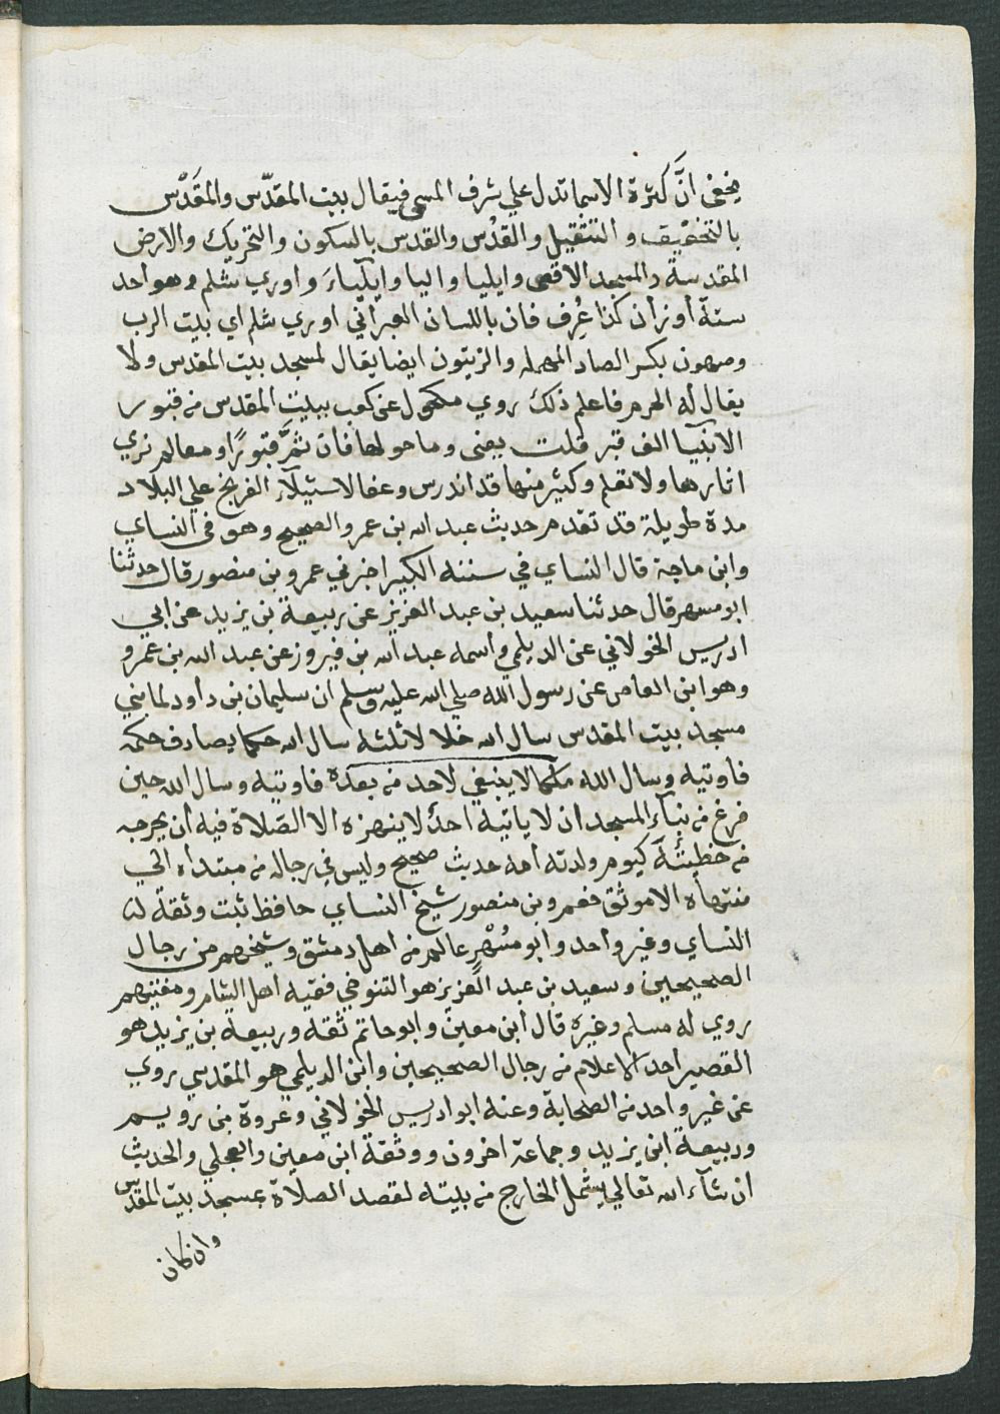 يخفى انَّ كثرة الاسما تدل علي شرف المسمى فيقال بيت المقدّس والمقَدْس
بالتخفيف و التثقيل والقدْس والقدس بالسكون والتحريك والارض
المقدسة والمسجد الاقصى وايليا واليا وايلياءَ و اوري شلم وهو احد
ستة اوزان كذا عُرِف فان باللسان العبراني اوري شلم اي بيت الرب
وصهون بكسر الصاد المهمله والزيتون ايضا يقال لمسجد بيت المقدس ولا
يقال له الحرم فاعلم ذلك روي مكحول عن كعب ببيت المقدس من قبور
الانبيا الف قبر قلت يعنى وما حولها فان ثمَّ قبورًا ومعالم نري
اثارها ولا تعلم وكثير منها قد اندرس وعفا لاستيلآء الفرنج علي البلاد
مدة طويلة قد تقدم حديث عبد الله بن عمرو الصحيح وهو فى النساي
وابن ماجة قال النساي في سننه الكبير اخبرني عمرو بن منصور قال حدثنا
ابو مسهر قال حدثنا سعيد بن عبد العزيز عن ربيعة بن يزيد عن ابي
ادريس الخولاني عن الديلمي واسمه عبد الله بن فيروز عن عبد الله بن عمرو
وهو ابن العاص عن رسول الله صلي الله عليه وسلم ان سليمان بن داود لما بني
مسجد بيت المقدس سال الله خلالا ثلثه سال الله حكما يصادف حكمه
فاوتيه وسال الله ملكا لا ينبغي لاحد من بعده فاوتيه وسال الله حين
فرغ من بنآء المسجد ان لا ياتيه احدٌ لا ينهزه الا الصّلاة فيه ان يخرجه
من خطيئته كيوم ولدته امه حديث صحيح وليس في رجاله من مبتداه الي
منتهاه الا موثق فعمرو بن منصور شيخ النساي حافظ ثبت وثقه لنا
النساي وغير واحد وابو مُسْهِر عالم من اهل دمشق وشيخهم من رجال
الصحيحين وسعيد بن عبد العزيز هو التنوخي فقيه اهل الشام ومفتيهم
روي له مسلم وغيره قال ابن معين وابو حاتم ثقه وربيعه بن يزيد هو
القصير احد الاعلام من رجال الصحيحين وابن الديلمي هو المقدسي روي
عن غير واحد من الصحابة وعنه ابو ادريس الخولاني وعروة بن رويم
وربيعة ابن يزيد وجماعة اخرون ووثقة ابن معين والعجلي والحديث
ان شآء الله تعالي يشمل الخارج من بيته لقصد الصلاة بمسجد بيت المقدس
وان كان